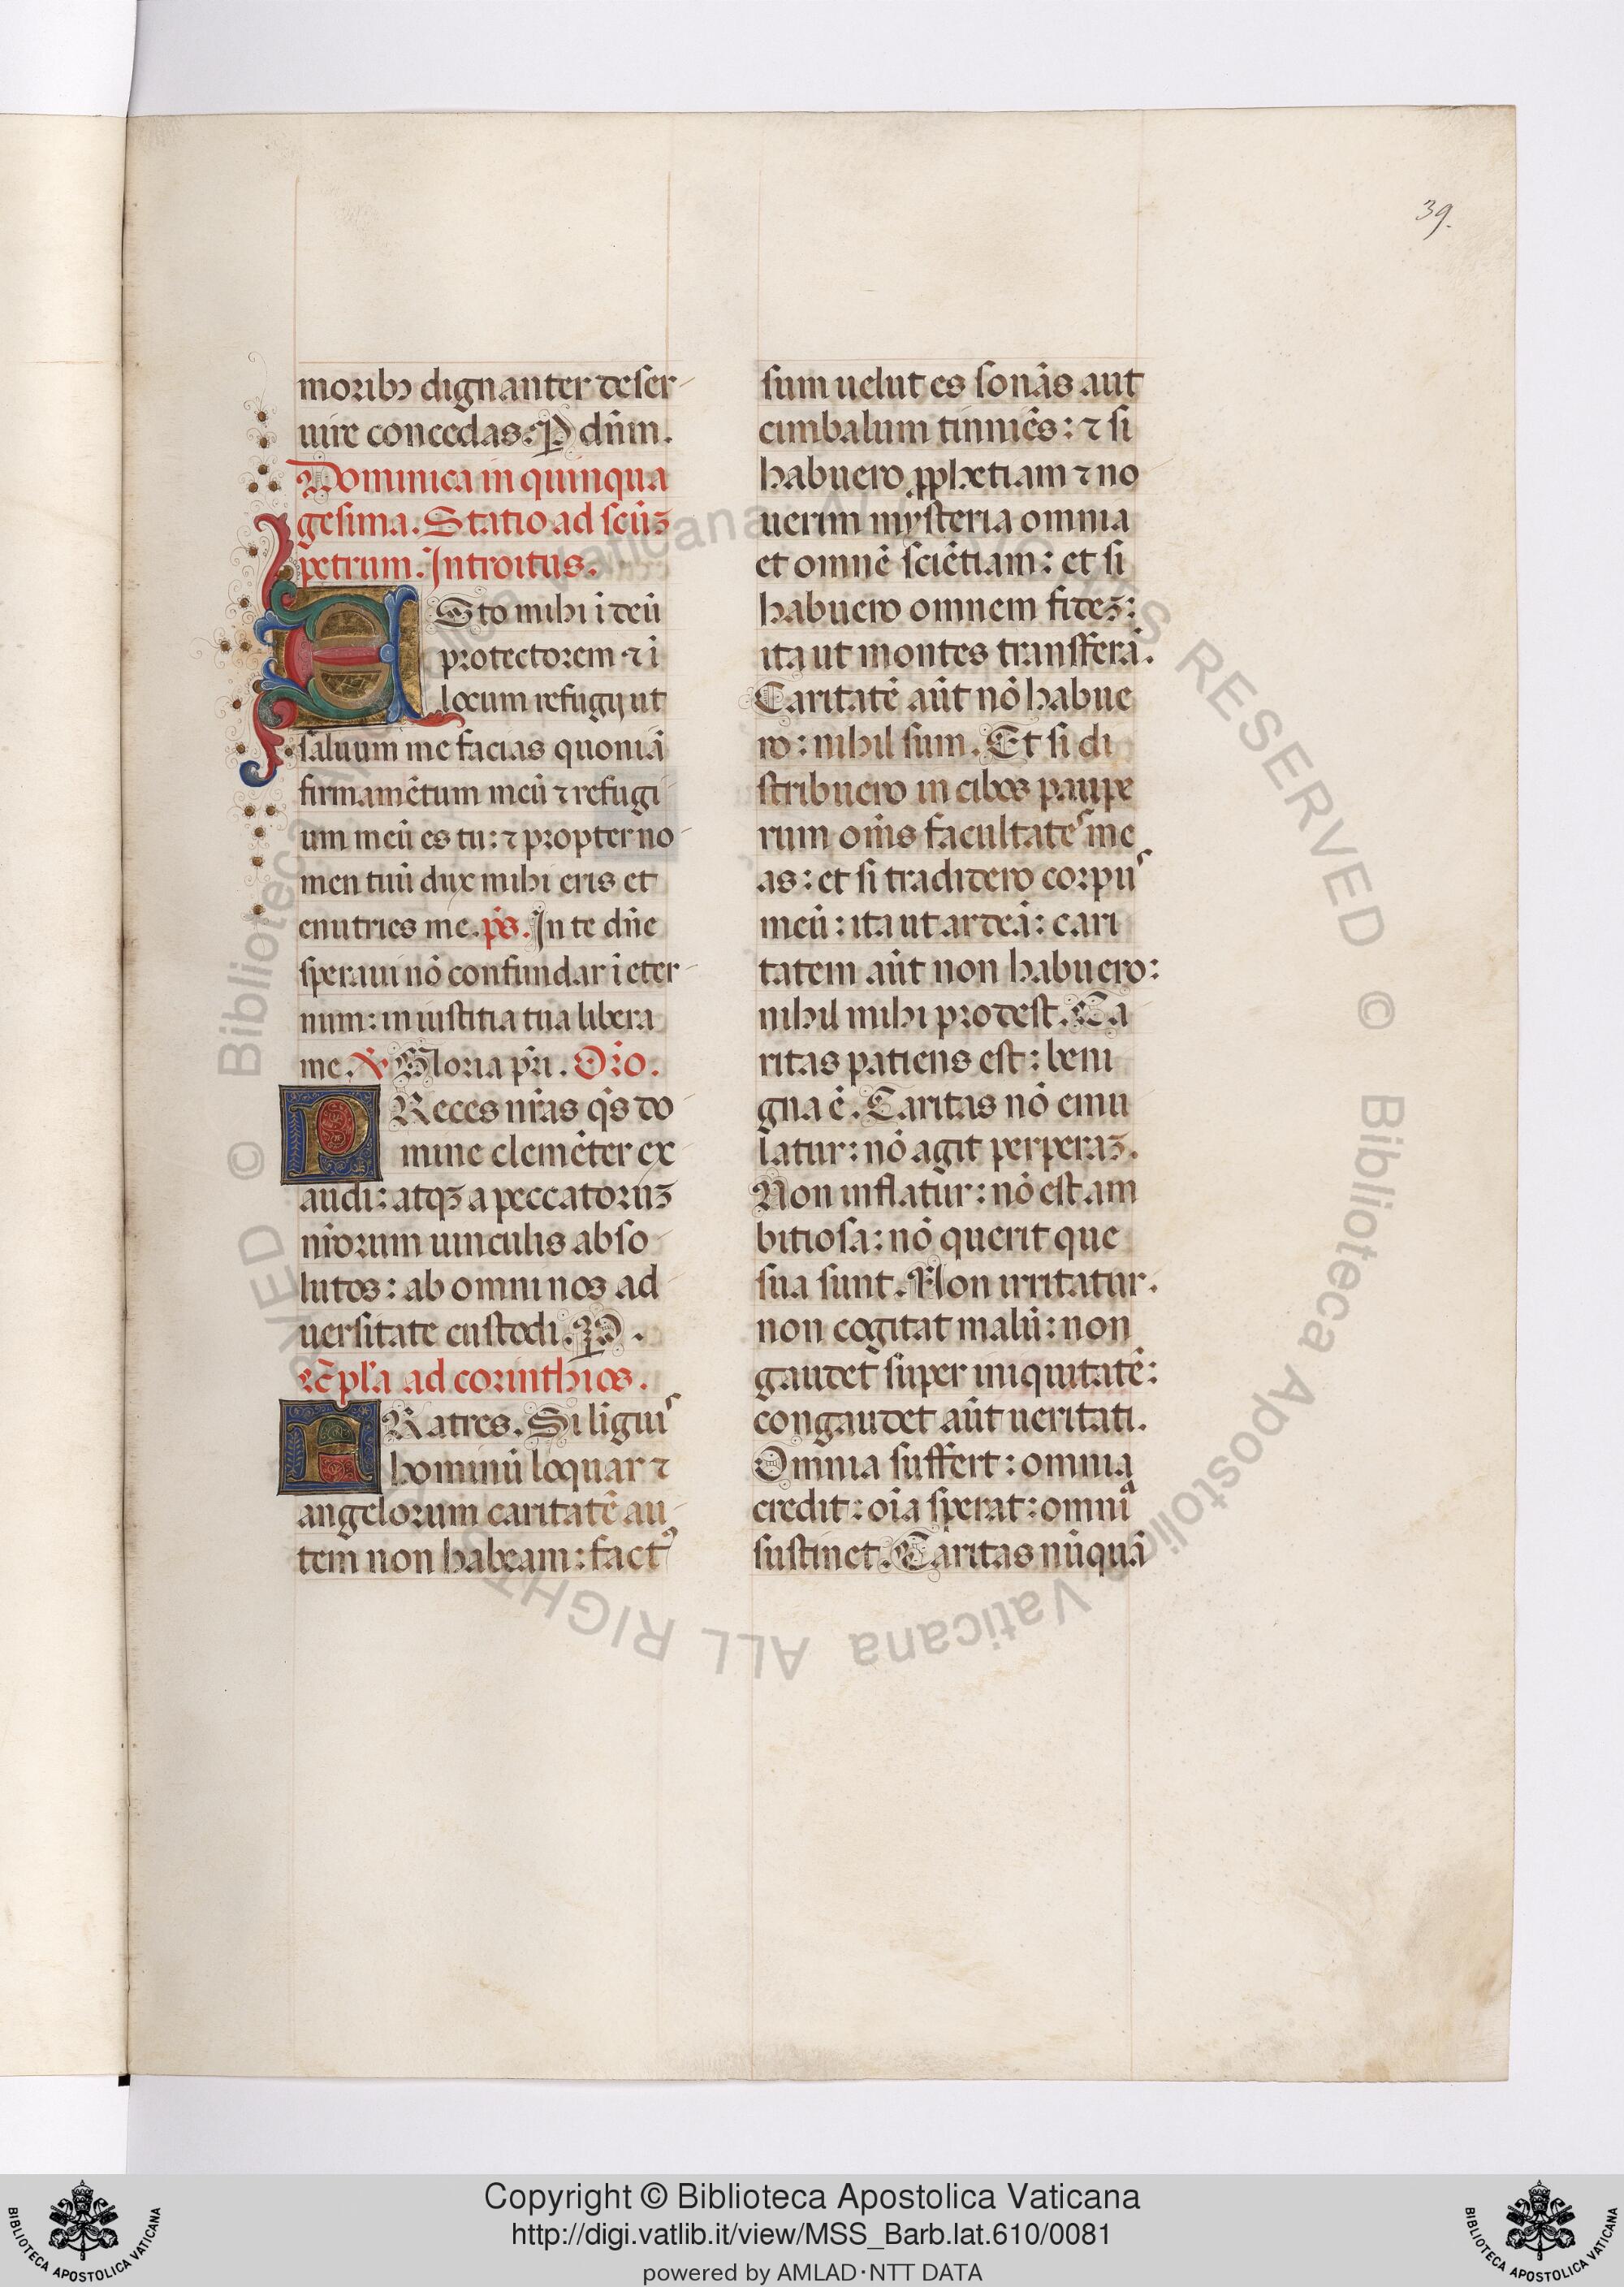 39.
moribꝫ dignanter deser
uire concedas. P dn̄m.
Dominica in quinqua
gesima. Statio ad scūꝫ
petrum. Introitus.
ESto mihi ī deū
protectorem ⁊ ī
locum refugij ut
saluum me facias quoniā
firmamētum meū ⁊ refugi
um meū es tu: ⁊ propter no
men tuū dux mihi eris et
enutries me. pš. In te dn̄e
speraui nō confundar ī eter
num: in iustitia tua libera
me. ℣ Gloria pr̄i. Or̄o.
PReces nr̄as qs̄ do
mine clemēter ex
audi: atqꝫ a peccatoruꝫ
nr̄orum uinculis abso
lutos: ab omni nos ad
uersitate custodi. P.
Ep̄la ad corinthios.
FRatres. Si liguis
hominū loquar ⁊
angelorum caritatē au
tem non habeam: factꝰ
sum uelut es sonās aut
cimbalum tinniēs: ⁊ si
habuero ꝓphetiam ⁊ no
uerim mysteria omnia
et omnē sciētiam: et si
habuero omnem fideꝫ:
ita ut montes transferā.
Caritatē aūt nō habue
ro: nihil sum. Et si di
stribuero in cibos paupe
rum om̄s facultates me
as: et si tradidero corpus
meū: ita ut ardeā: cari
tatem aūt non habuero:
nihil mihi prodest. Ca
ritas patiens est: beni
gna ē. Caritas nō emu
latur: nō agit perperaꝫ.
Non inflatur: nō est am
bitiosa: nō querit que
sua sunt. Non irritatur.
non cogitat malū: non
gaudet super iniquitatē:
congaudet aūt ueritati.
Omnia suffert: omnia
credit: oīa sperat: omnia
sustinet. Caritas nūquā
Copyright © Biblioteca Apostolica Vaticana
http://digi.vatlib.it/view/MSS_Barb.lat.610/0081
powered by AMLAD·NTT DATA
BIBLIOTECA APOSTOLICA VATICANA
BIBLIOTECA APOSTOLICA VATICANA